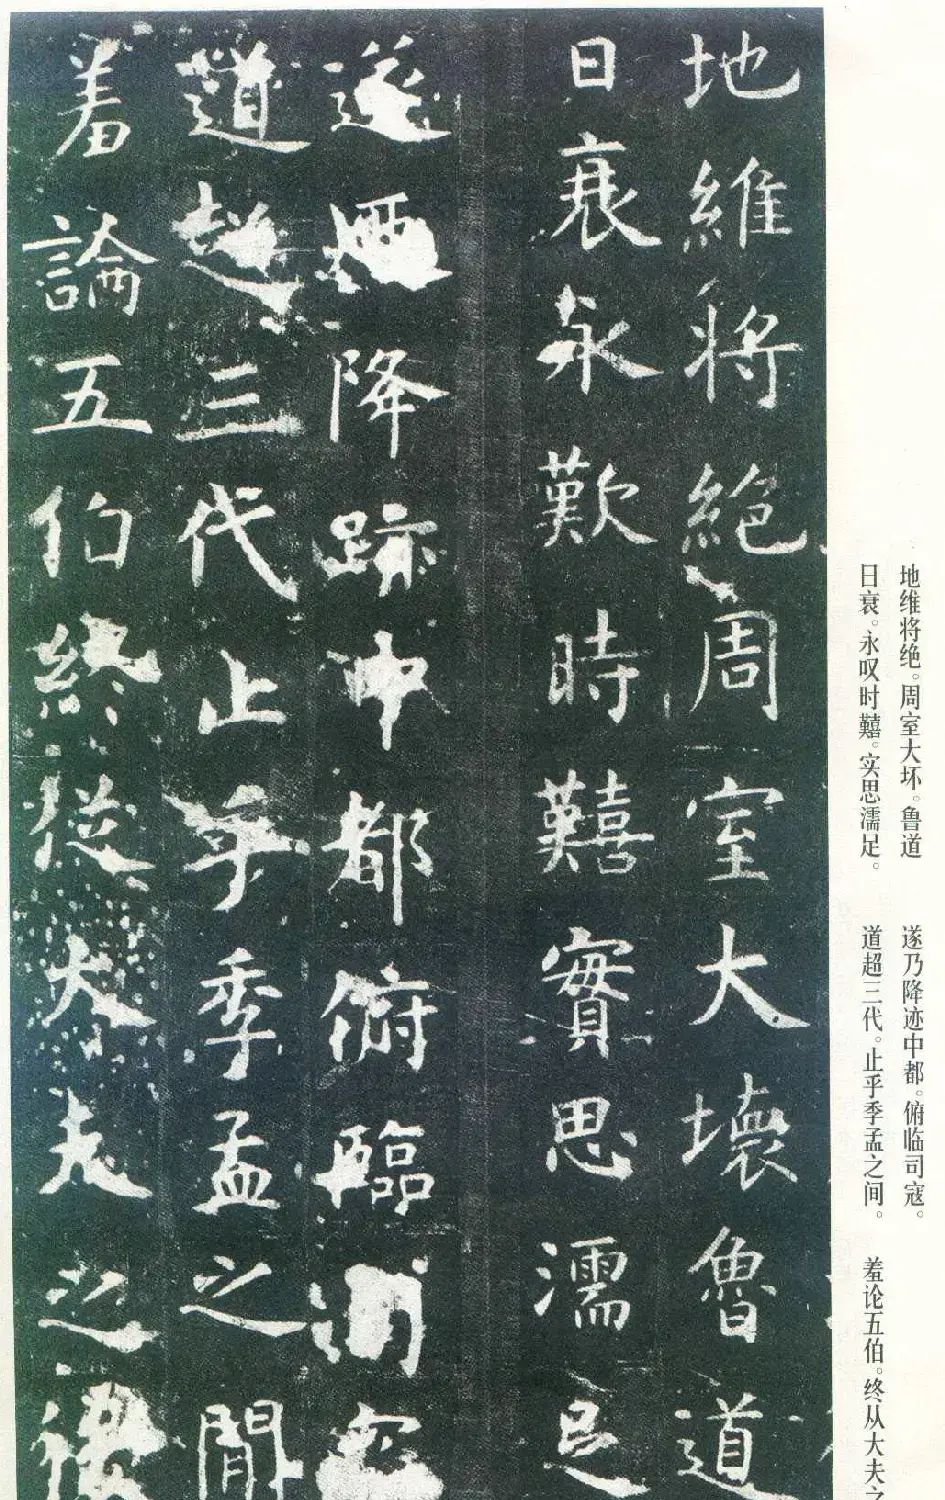 地维将绝。周室大坏。鲁道
日衰。永叹时囏。实思濡足。
遂乃降迹中都。俯临司寇。
道超三代。止乎季孟之间。
羞论五伯。终从大夫之
地維將絕周室大壞魯道
日衰永歎時囏實思濡足
遂迺降跡中都俯臨司寇
道超三代止乎季孟之間
羞論五伯終從大夫之後